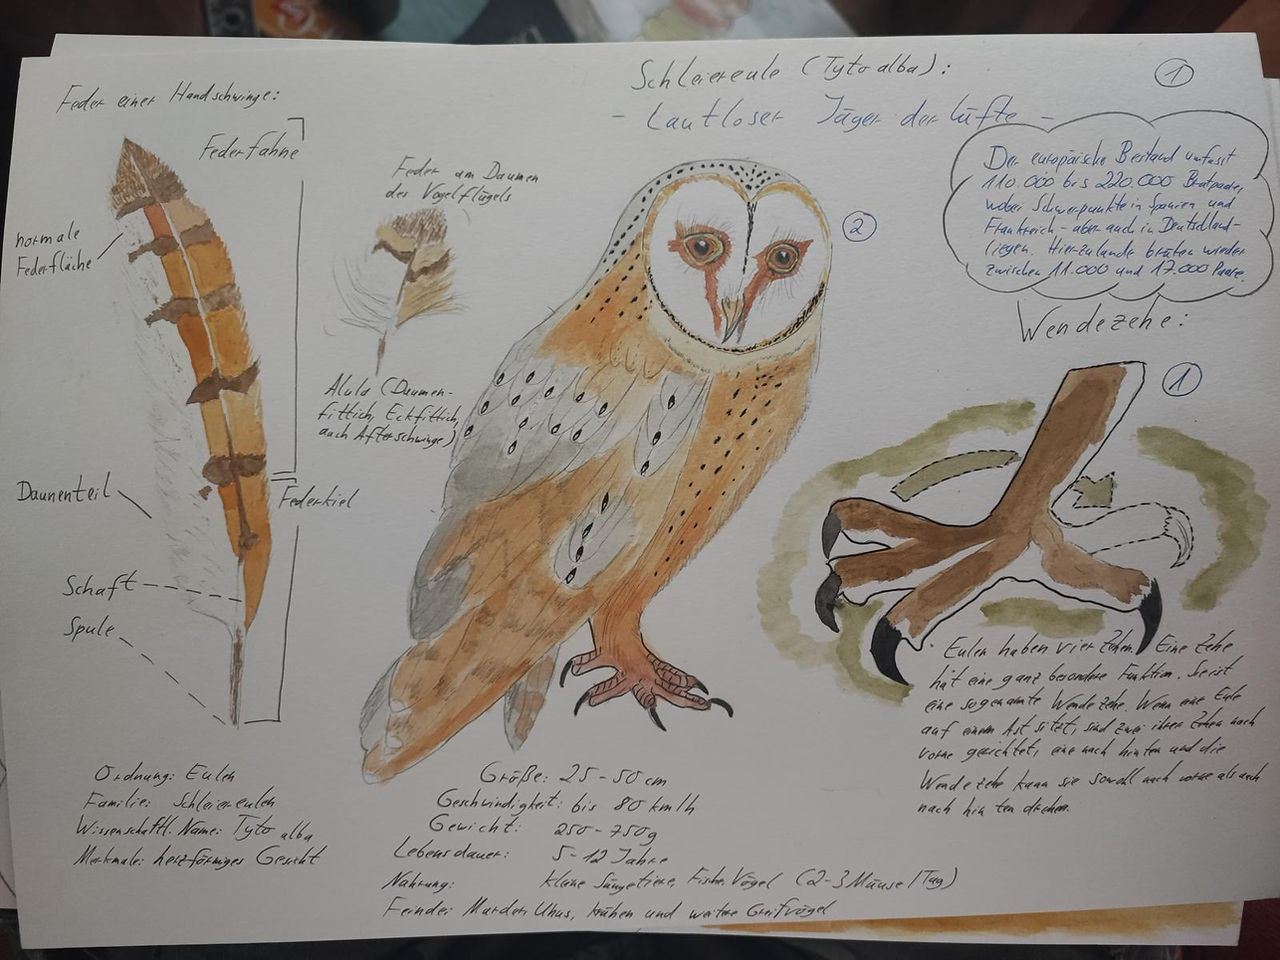 Schleiereule (Tyto alba):
- Lautloser Jäger der Lüfte -
1
Feder einer Handschwinge:
Federfahne
normale
Federfläche
Daunenteil
Schaft
Spule
Federkiel
Feder am Daumen
des Vogelflügels
Alula (Daumen-
fittich, Eckfittich,
auch Afterschwinge)
2
Der europäische Bestand umfasst
110.000 bis 220.000 Brutpaare,
wobei Schwerpunkte in Spanien und
Frankreich - aber auch in Deutschland -
liegen. Hierzulande brüten wieder
zwischen 11.000 und 17.000 Paare.
Wendezehe:
1
Eulen haben vier Zehen. Eine Zehe
hat eine ganz besondere Funktion. Sie ist
eine sogenannte Wendezehe. Wenn eine Eule
auf einem Ast sitzt, sind zwei ihrer Zehen nach
vorne gerichtet, eine nach hinten und die
Wendezehe kann sie sowohl nach vorne als auch
nach hinten drehen.
Ordnung: Eulen
Familie: Schleiereulen
Wissenschaftl. Name: Tyto alba
Merkmale: herzförmiges Gesicht
Größe: 25-50 cm
Geschwindigkeit: bis 80 km/h
Gewicht: 250-750g
Lebensdauer: 5-12 Jahre
Nahrung: kleine Säugetiere, Fische, Vögel (2-3 Mäuse/Tag)
Feinde: Marder, Uhus, Krähen und weitere Greifvögel